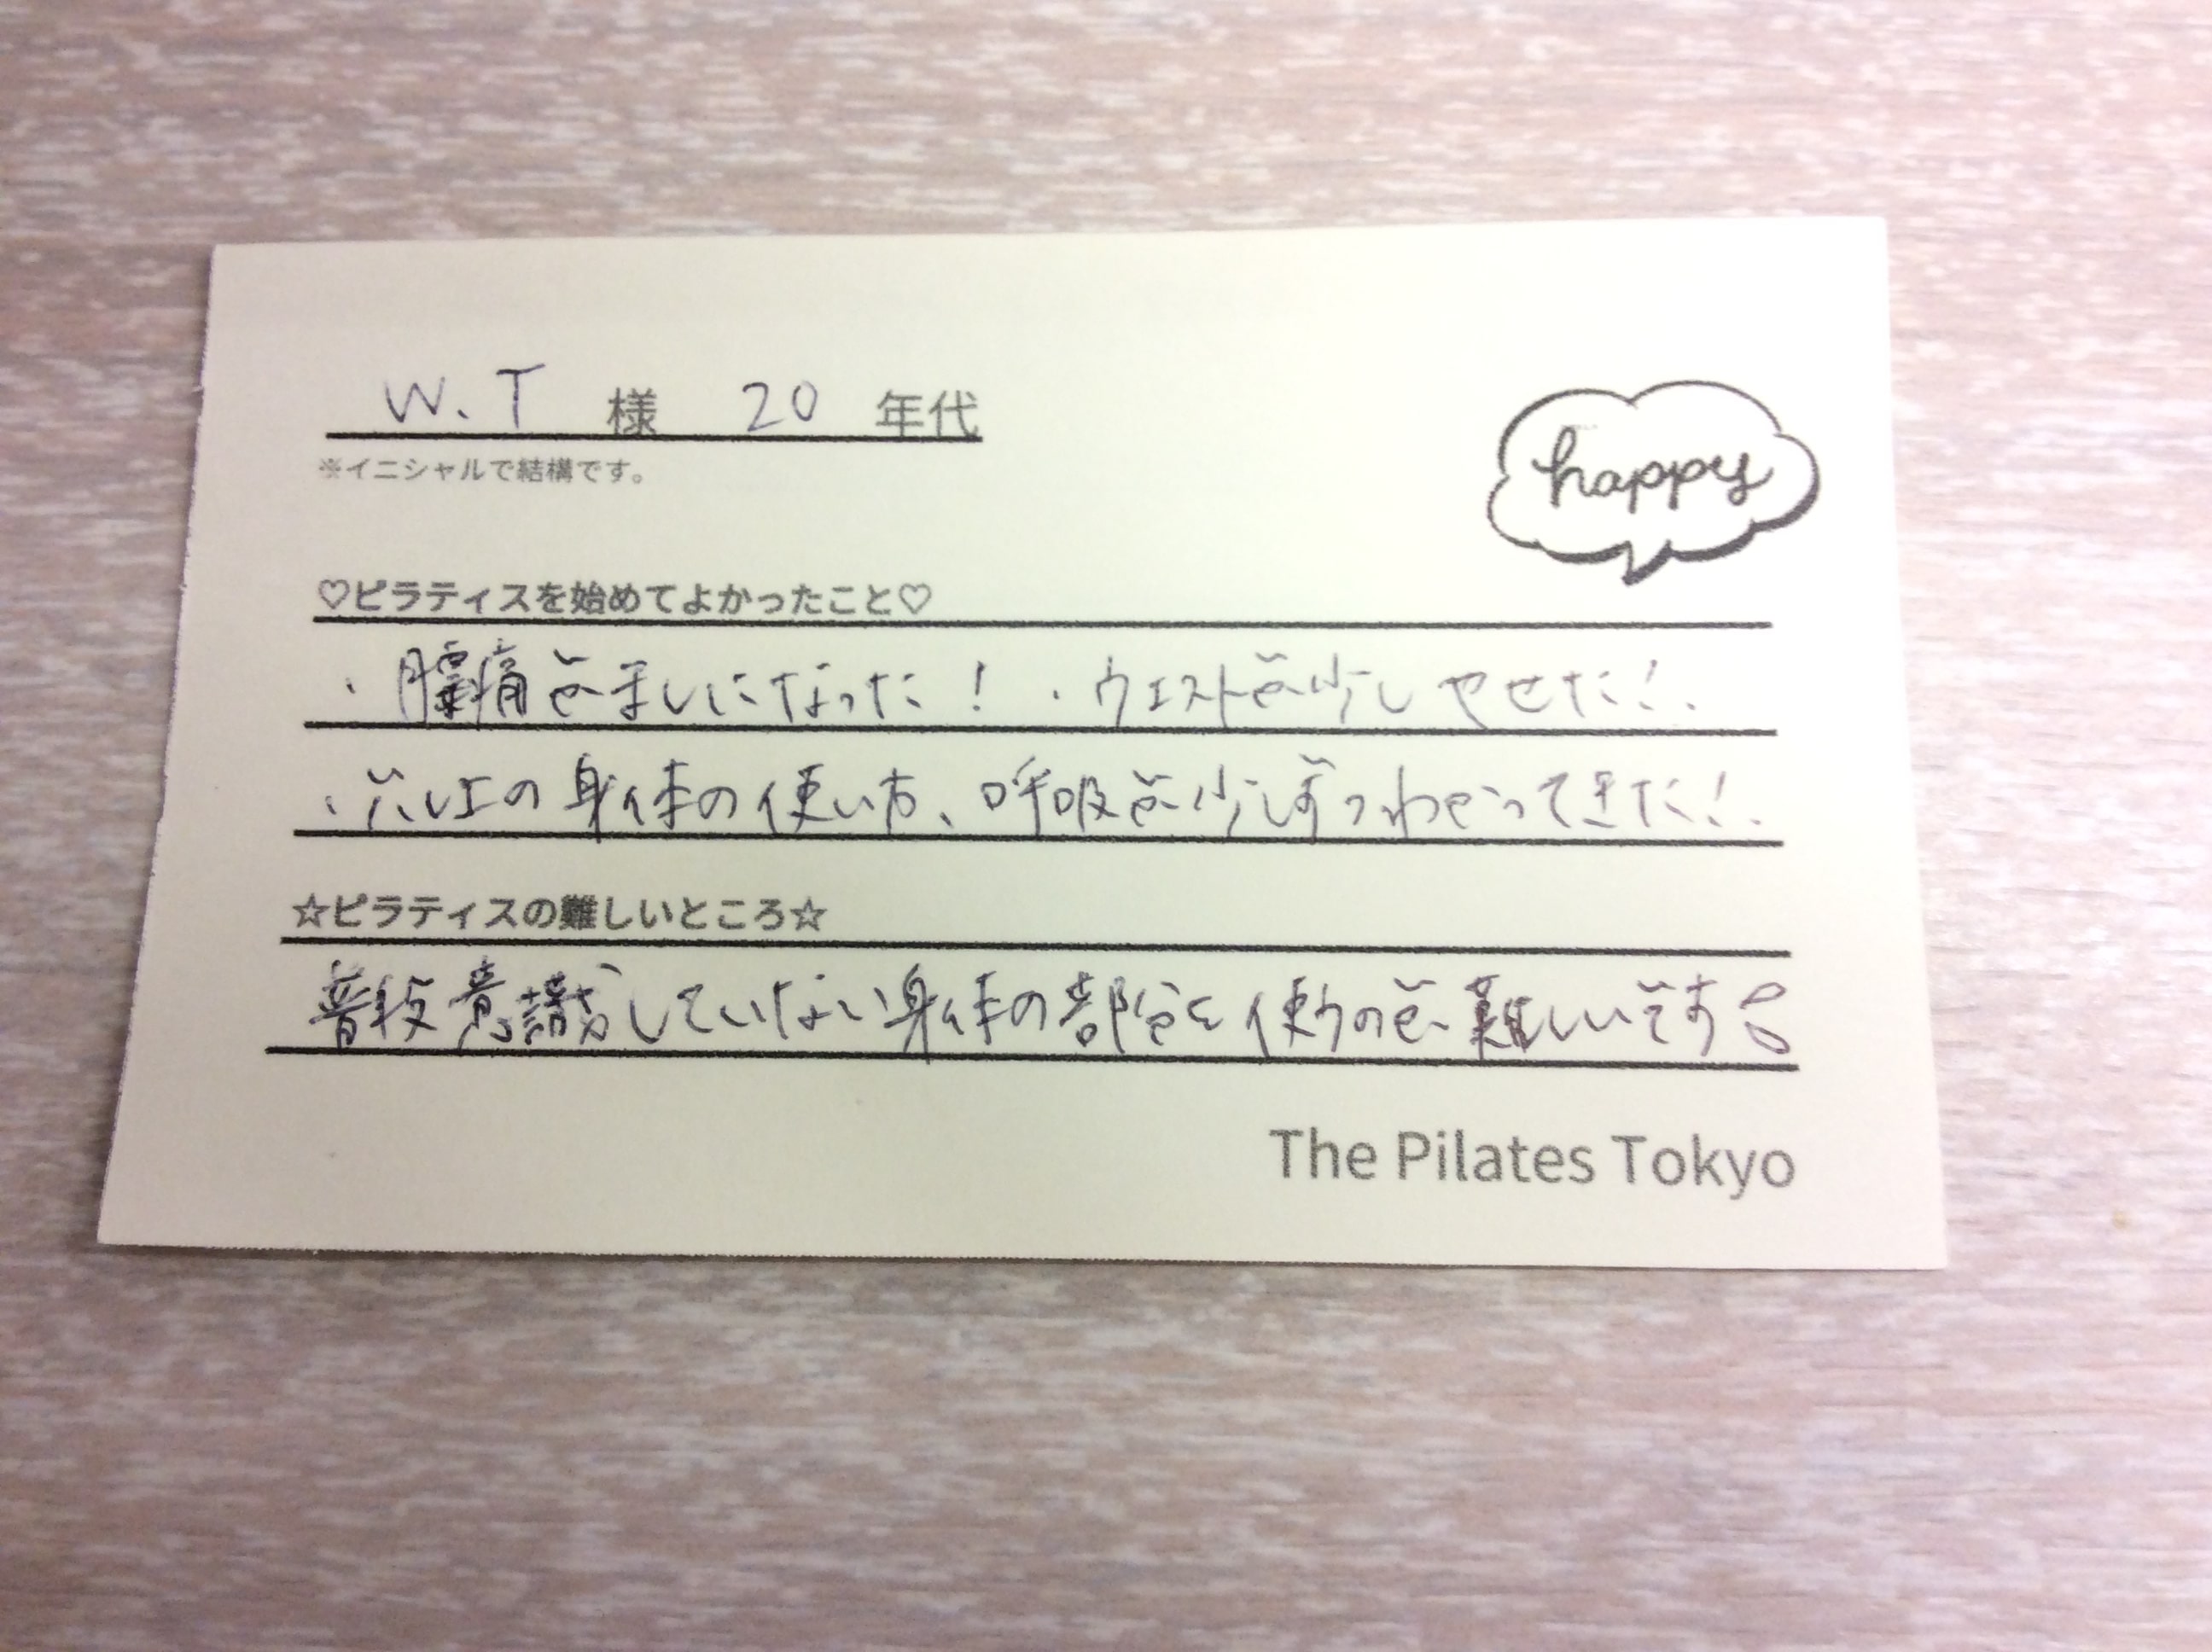 W.T 様 20 年代
※イニシャルで結構です。
happy
♡ピラティスを始めてよかったこと♡
・腰痛がましになった！ ・ウエストが少しやせた！
・の身体の使い方、呼吸が少しずつわかってきた！
☆ピラティスの難しいところ☆
普段意識していない身体の部分を使うのが難しいです
The Pilates Tokyo